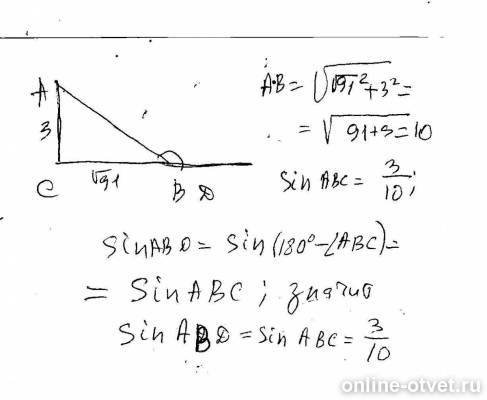 A
3
C
√91
B D
AB = √(√91² + 3²) =
= √(91+9) = 10
sin ABC = 3/10;
sin ABD = sin(180° - ∠ABC) =
= sin ABC; значит
sin ABD = sin ABC = 3/10
online-otvet.ru